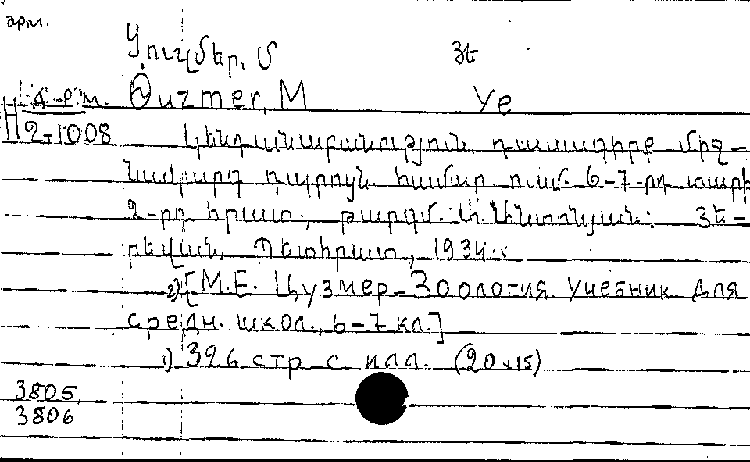 арм.
Ցուզմեր, Մ Յե
Զ-Р.м. Quzmer, M Ye
H 2-1008 Կենդանաբանություն դասագիրք միջ-
նակարգ դպրոցի համար ուսմ. 6-7-րդ տարի
2-րդ հրատ., թարգմ. Անտոնյան: Յե-
րևան, Պետհրատ, 1934.
2) [М.Е. Цузмер - Зоология. Учебник для
средн. школ., 6-7 кл.]
1) 396 стр с илл. (20x15)
3805,
3806